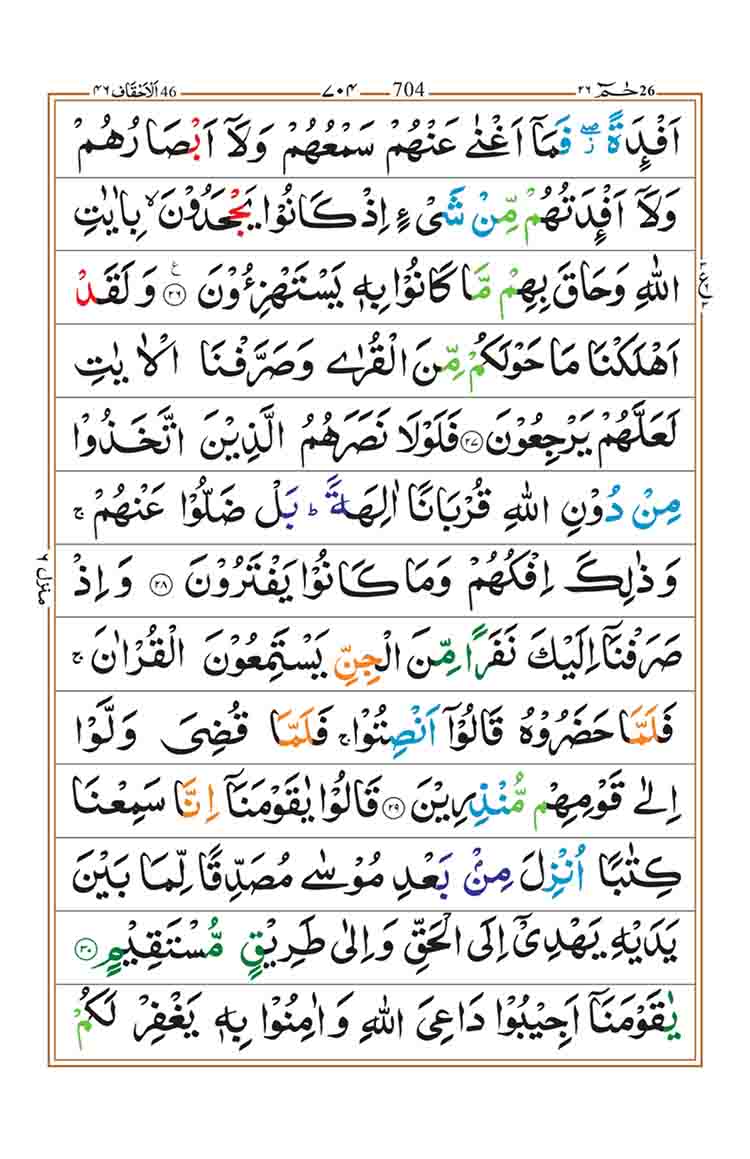 الاحقاف ٤٦ 46 704 ٧٠٤ حٰمٓ ٢٦ 26
اَفْـِٕدَةً ۖ٘ فَمَاۤ اَغْنٰى عَنْهُمْ سَمْعُهُمْ وَلَاۤ اَبْصَارُهُمْ
وَلَاۤ اَفْـِٕدَتُهُمْ مِّنْ شَیْءٍ اِذْ كَانُوْا یَجْحَدُوْنَ ۙ بِاٰیٰتِ
اللّٰهِ وَحَاقَ بِهِمْ مَّا كَانُوْا بِهٖ یَسْتَهْزِءُوْنَ ۠ ﴿۲۶﴾ وَلَقَدْ
اَهْلَكْنَا مَا حَوْلَكُمْ مِّنَ الْقُرٰى وَصَرَّفْنَا الْاٰیٰتِ
لَعَلَّهُمْ یَرْجِعُوْنَ ﴿۲۷﴾ فَلَوْلَا نَصَرَهُمُ الَّذِیْنَ اتَّخَذُوْا
مِنْ دُوْنِ اللّٰهِ قُرْبَانًا اٰلِهَةً ؕ بَلْ ضَلُّوْا عَنْهُمْ ۚ
وَذٰلِكَ اِفْكُهُمْ وَمَا كَانُوْا یَفْتَرُوْنَ ﴿۲۸﴾ وَاِذْ
صَرَفْنَاۤ اِلَیْكَ نَفَرًا مِّنَ الْجِنِّ یَسْتَمِعُوْنَ الْقُرْاٰنَ ۚ
فَلَمَّا حَضَرُوْهُ قَالُوْۤا اَنْصِتُوْا ۚ فَلَمَّا قُضِیَ وَلَّوْا
اِلٰى قَوْمِهِمْ مُّنْذِرِیْنَ ﴿۲۹﴾ قَالُوْا یٰقَوْمَنَاۤ اِنَّا سَمِعْنَا
كِتٰبًا اُنْزِلَ مِنْ بَعْدِ مُوْسٰى مُصَدِّقًا لِّمَا بَیْنَ
یَدَیْهِ یَهْدِیْۤ اِلَى الْحَقِّ وَاِلٰى طَرِیْقٍ مُّسْتَقِیْمٍ ﴿۳۰﴾
یٰقَوْمَنَاۤ اَجِیْبُوْا دَاعِیَ اللّٰهِ وَاٰمِنُوْا بِهٖ یَغْفِرْ لَكُمْ
منزل ٦